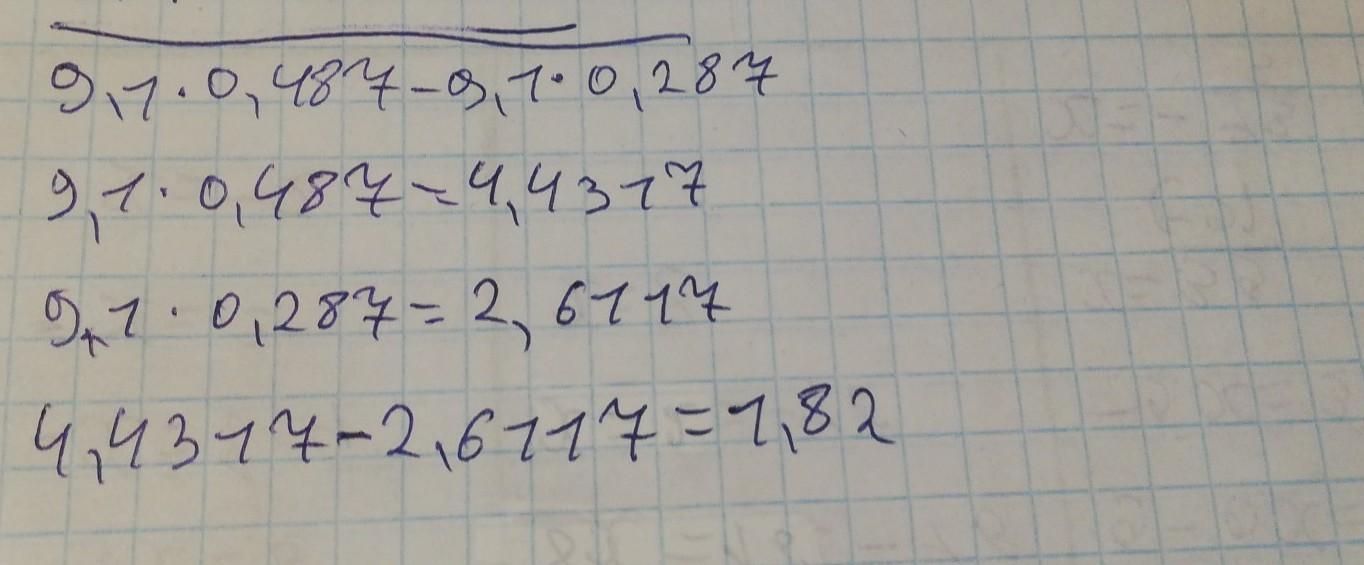 9,1·0,487-9,1·0,287
9,1·0,487=4,4317
9,1·0,287=2,6117
4,4317-2,6117=1,82